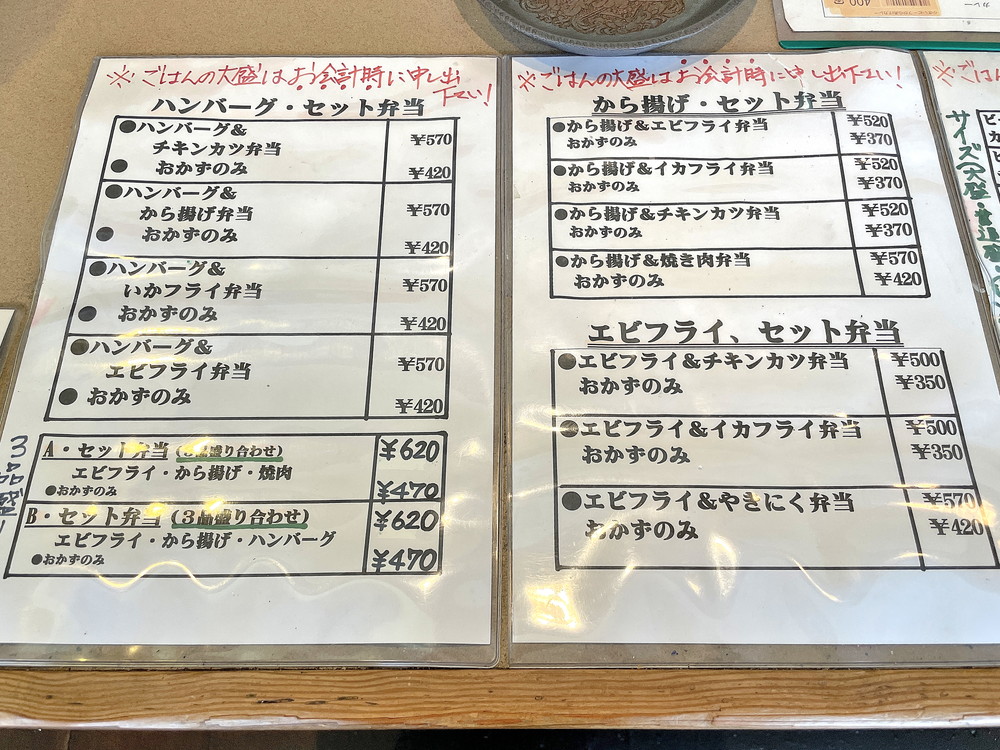 ※ごはんの大盛はお会計時に申し出
下さい!
ハンバーグ・セット弁当
●ハンバーグ&
チキンカツ弁当 ¥570
● おかずのみ ¥420
●ハンバーグ&
から揚げ弁当 ¥570
● おかずのみ ¥420
●ハンバーグ&
いかフライ弁当 ¥570
● おかずのみ ¥420
●ハンバーグ&
エビフライ弁当 ¥570
● おかずのみ ¥420
A・セット弁当(3品盛り合わせ) ¥620
エビフライ・から揚げ・焼肉
●おかずのみ ¥470
B・セット弁当(3品盛り合わせ) ¥620
エビフライ・から揚げ・ハンバーグ
●おかずのみ ¥470
3品盛り
※ごはんの大盛はお会計時に申し出下さい!
から揚げ・セット弁当
●から揚げ&エビフライ弁当 ¥520
おかずのみ ¥370
●から揚げ&イカフライ弁当 ¥520
おかずのみ ¥370
●から揚げ&チキンカツ弁当 ¥520
おかずのみ ¥370
●から揚げ&焼き肉弁当 ¥570
おかずのみ ¥420
エビフライ、セット弁当
●エビフライ&チキンカツ弁当 ¥500
おかずのみ ¥350
●エビフライ&イカフライ弁当 ¥500
おかずのみ ¥350
●エビフライ&やきにく弁当 ¥570
おかずのみ ¥420
※ごは
サイズ(大盛・普通
400
カレー